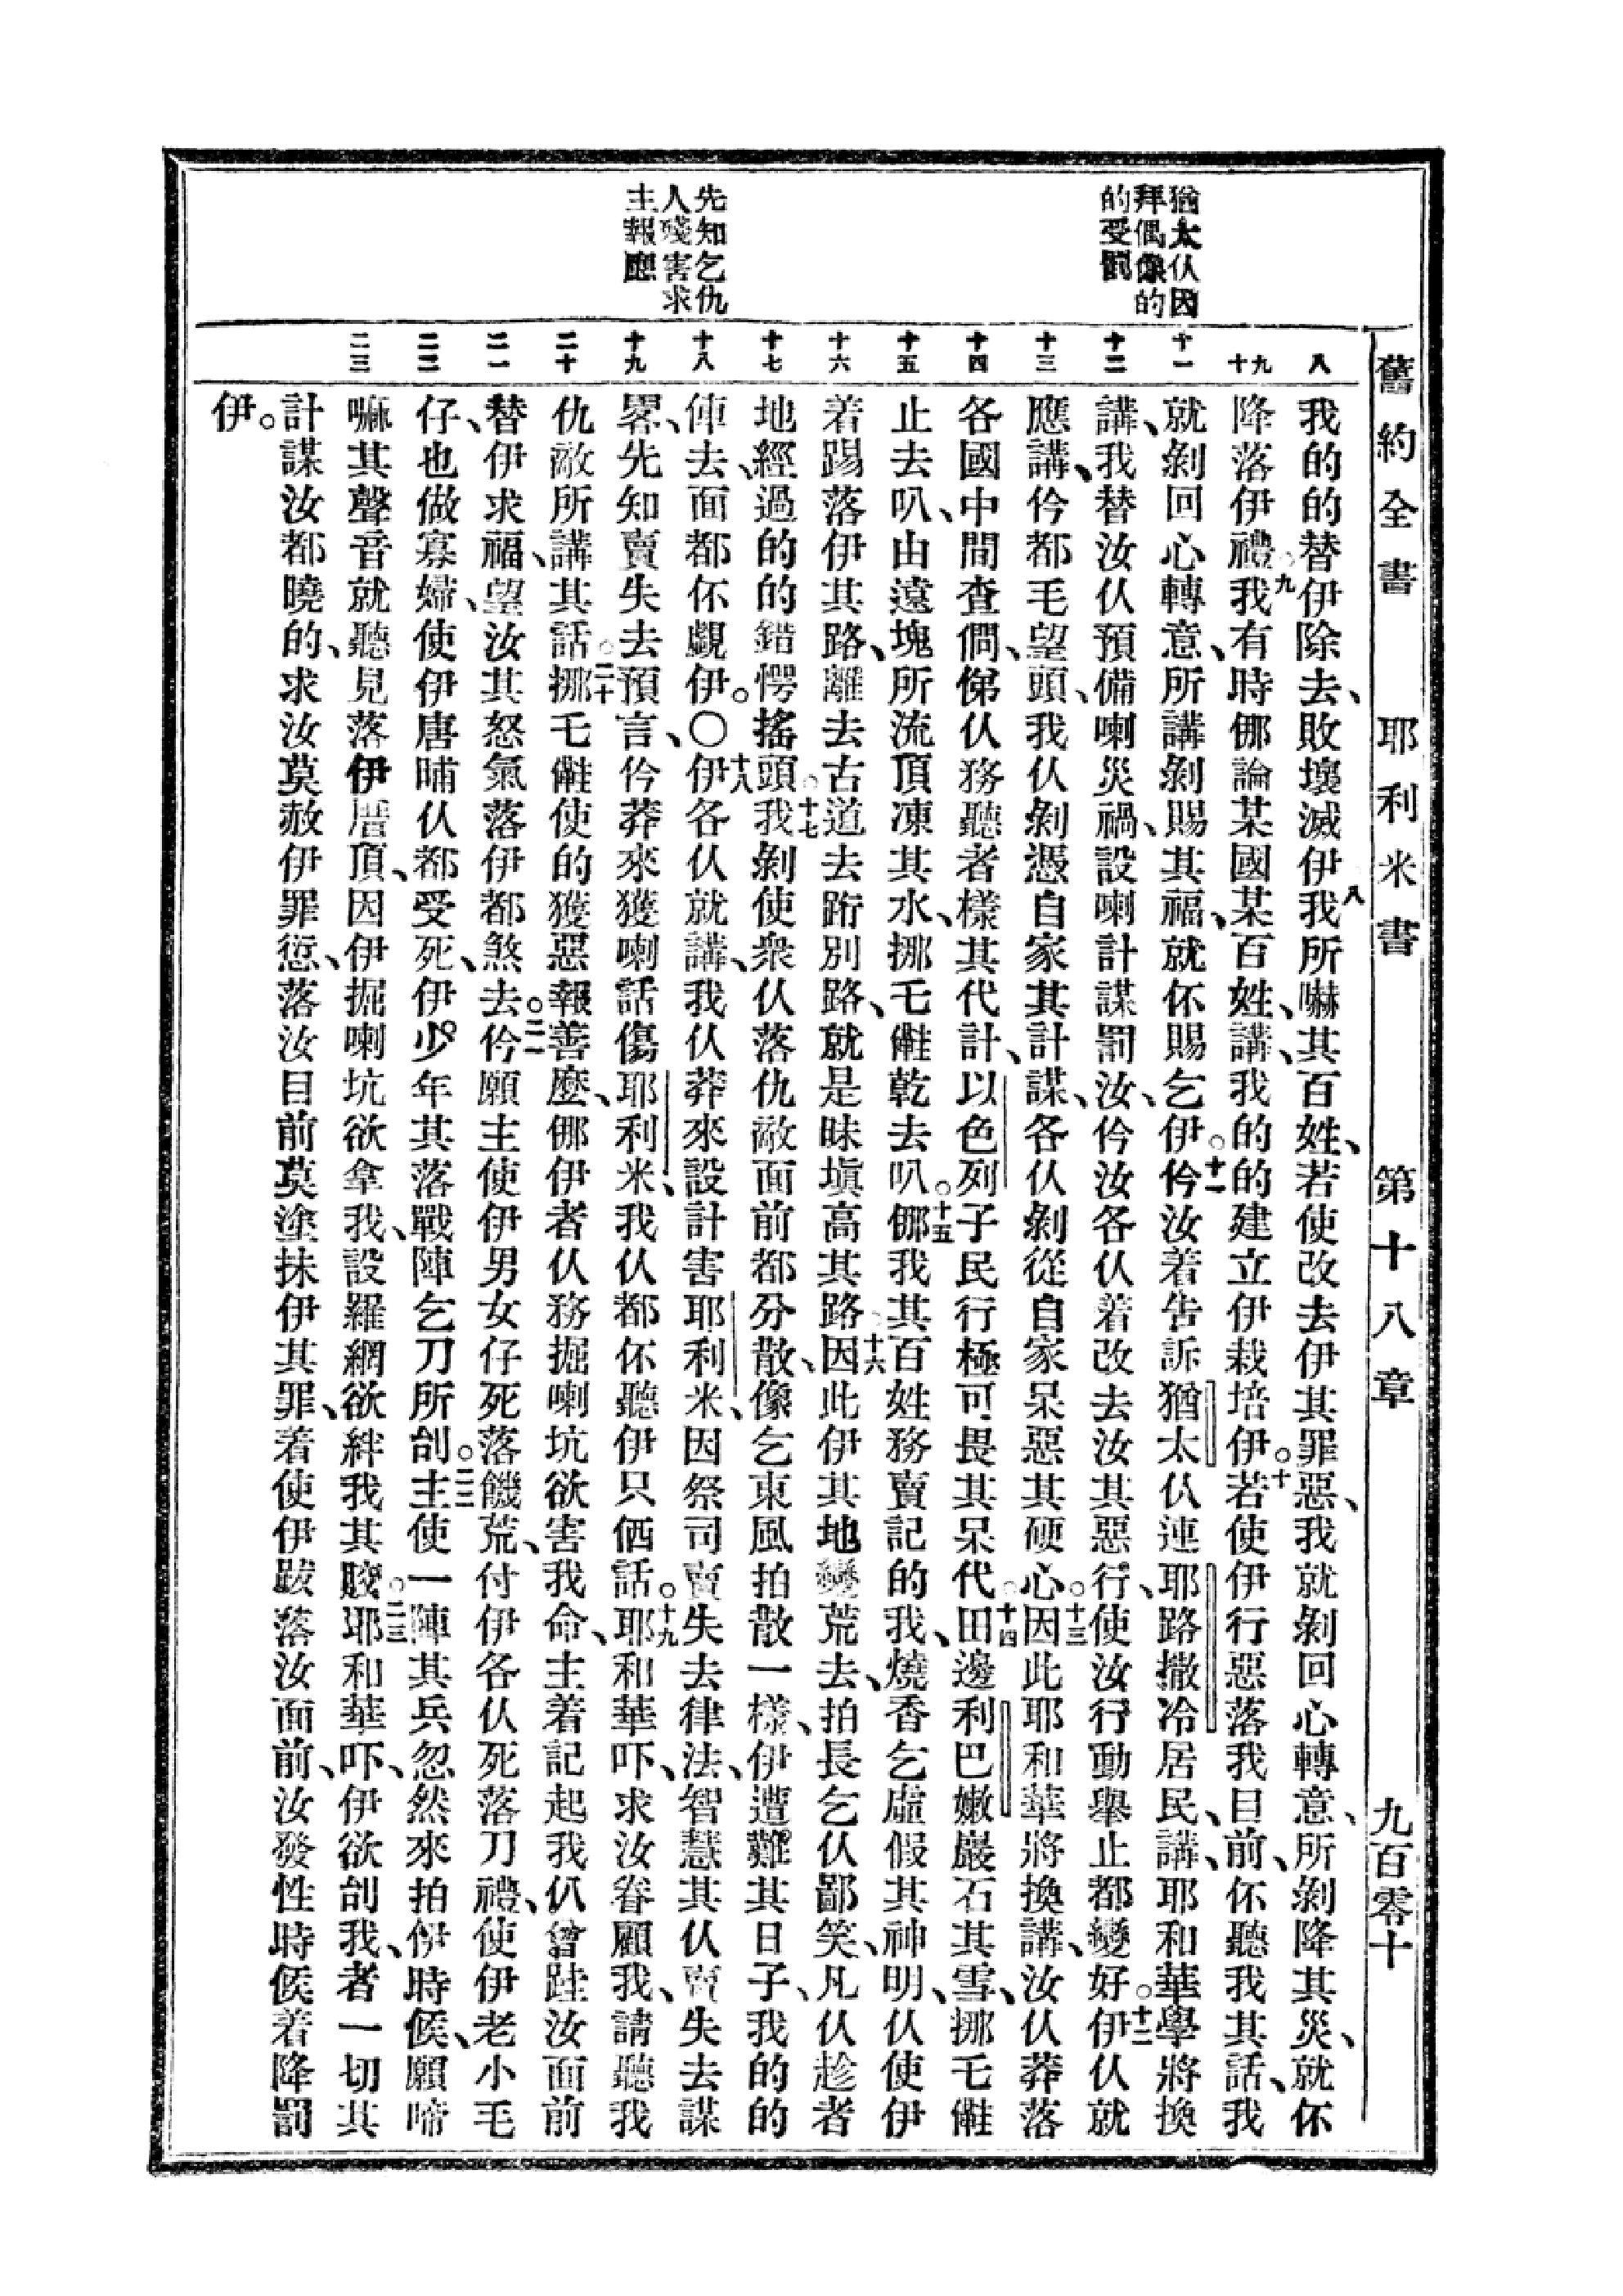 舊約全書 耶利米書 第十八章 九百零十
猶太仈因
拜偶像的
的受罰
先知乞仇
人殘害求
主報應
八 九 十 十一 十二 十三 十四 十五 十六 十七 十八 十九 二十 二一 二二 二三
我的的替伊除去、敗壞滅伊八我所嚇其百姓、若使改去伊其罪惡、我就剝回心轉意、所剝降其災、就伓
降落伊禮。九我有時倻論某國某百姓、講、我的的建立伊栽培伊。十若使伊行惡落我目前、伓聽我其話、我
就剝回心轉意、所講剝賜其福、就伓賜乞伊。十一仱汝着告訴猶太仈連耶路撒冷居民、講、耶和華學將換
講、我替汝仈預備喇災禍、設喇計謀罰汝、仱汝各仈着改去汝其惡行、使汝行動舉止都變好。十二伊仈就
應講、仱都毛望頭、我仈剝憑自家其計謀、各仈剝從自家呆惡其硬心。十三因此耶和華將換講、汝仈莽落
各國中間查僴、俤仈務聽者樣其代計、以色列子民行極可畏其呆代。十四田邊利巴嫩巖石其雪、挪乇㒕
止去叭、由遠塊所流頂凍其水、挪乇㒕乾去叭。十五倻我其百姓務賣記的我、燒香乞虛假其神明、仈使伊
着踢落伊其路、離去古道去跨別路、就是昧塡高其路。十六因此伊其地變荒去、拍長乞仈鄙笑、凡仈趁者
地經過的的錯愕搖頭。十七我剝使衆仈落仇敵面前都分散、像乞東風拍散一樣、伊遭難其日子、我的的
俥去、面都伓覷伊。〇十八伊各仈就講、我仈莽來設計害耶利米、因祭司賣失去律法、智慧其仈賣失去謀
畧、先知賣失去預言、仱莽來獲喇話傷耶利米、我仈都伓聽伊只㑚話。十九耶和華吓、求汝眷顧我、請聽我
仇敵所講其話。二十挪乇㒕使的獲惡報善麽、倻伊者仈務掘喇坑欲害我命、主着記起我仈曾跬汝面前
替伊求福、望汝其怒氣落伊都煞去。二一仱願主使伊男女仔死落饑荒、付伊各仈死落刀禮、使伊老小毛
仔、也做寡婦、使伊唐晡仈都受死、伊少年其落戰陣乞刀所刣。二二主使一陣其兵忽然來拍伊時候、願啼
嘛其聲音就聽見落伊厝頂、因伊掘喇坑欲拿我、設羅網欲絆我其骹。二三耶和華吓、伊欲刣我、者一切其
計謀汝都曉的、求汝莫赦伊罪愆、落汝目前莫塗抹伊其罪、着使伊跋落汝面前、汝發性時候着降罰
伊。